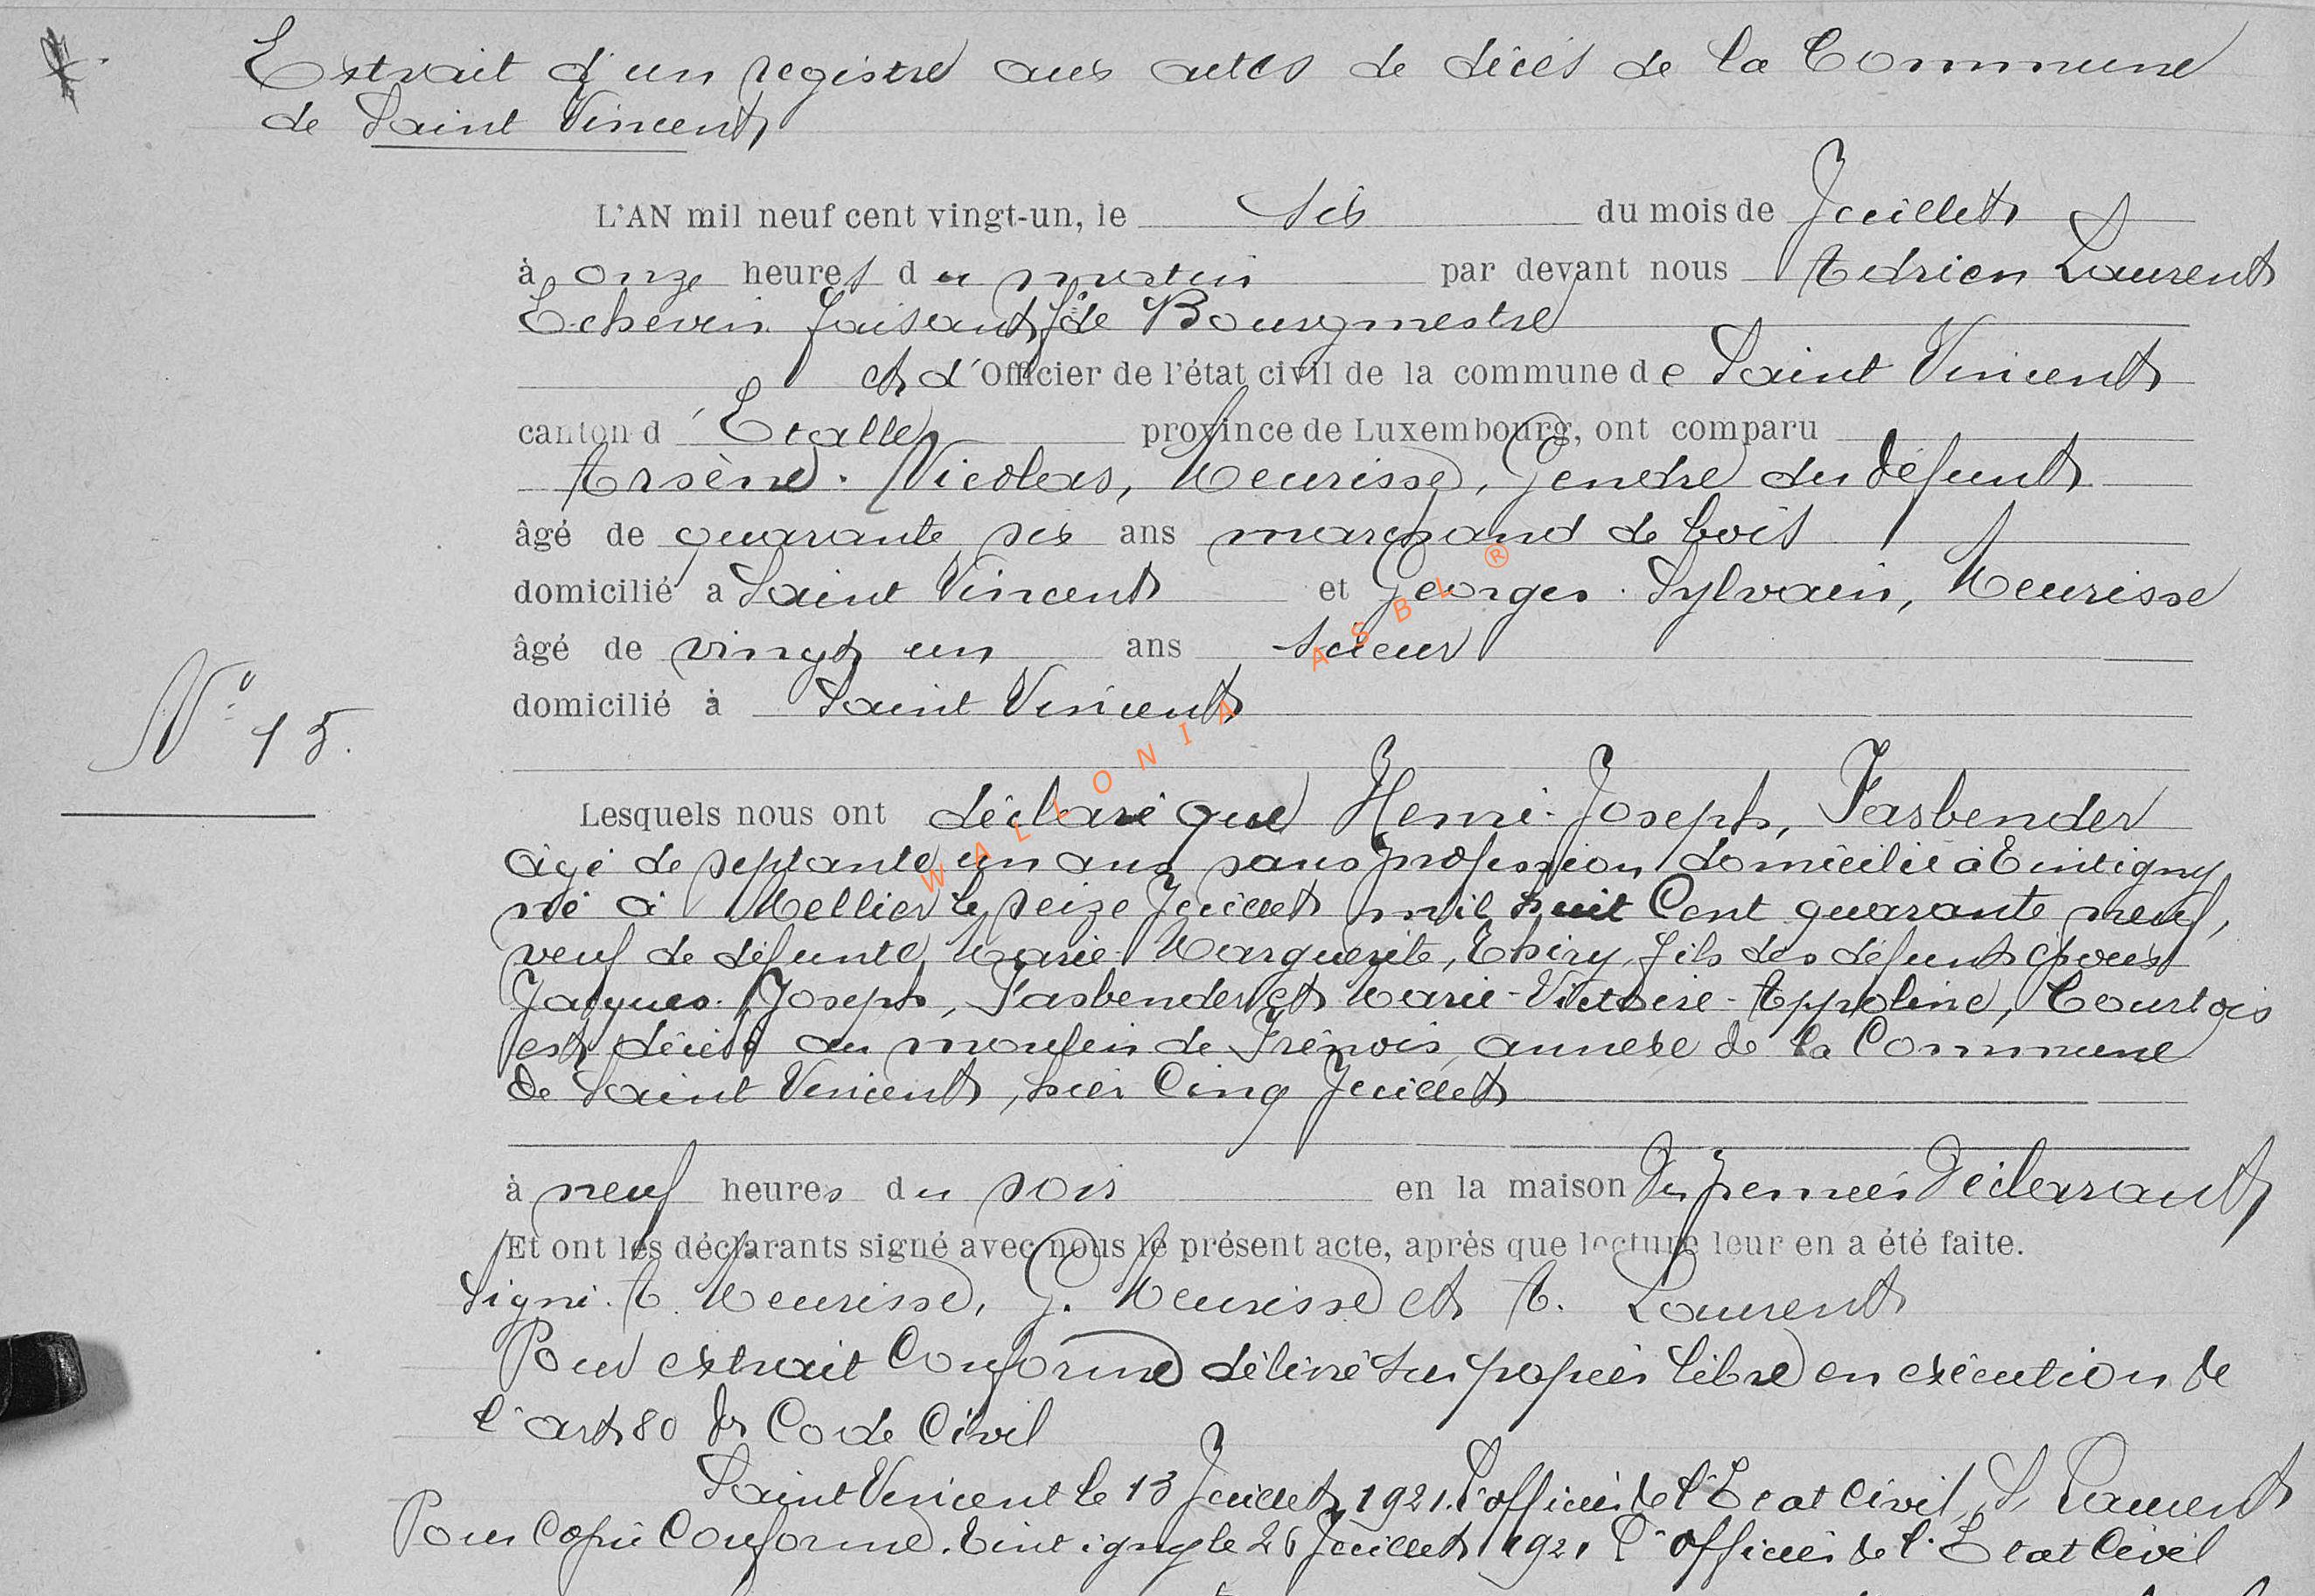 Extrait d'un registre aux actes de décès de la Commune
de Saint Vincent
L'AN mil neuf cent vingt-un, le six du mois de Juillet
à onze heures du matin par devant nous Adrien Laurent
Echevin faisant f. de Bourgmestre
et d'Officier de l'état civil de la commune de Saint Vincent
canton d'Etalle province de Luxembourg, ont comparu
Arsène-Nicolas, Meurisse, Gendre du défunt
âgé de quarante six ans marchand de bois
domicilié a Saint Vincent et Georges-Sylvain, Meurisse
âgé de vingt un ans scieur
domicilié à Saint Vincent
N° 15.
Lesquels nous ont déclaré que Henri-Joseph, Fasbender
âgé de septante un ans sans profession domicilié à Tintigny
né à Mellier le seize Juillet mil huit Cent quarante neuf,
veuf de défunte Marie-Marguerite, Thiry, fils des défunts époux
Jacques-Joseph, Fasbender et Marie-Victoire-Appoline, Courtois
est décédé au moulin de Frênois, annexe de la Commune
de Saint Vincent, hier Cinq Juillet
à neuf heures du soir en la maison du premier Déclarant
Et ont les déclarants signé avec nous le présent acte, après que lecture leur en a été faite.
Signé. A. Meurisse, G. Meurisse et A. Laurent
Pour extrait Conforme délivré sur papier libre en exécution de
l'art 80 du Code Civil
Saint Vincent le 13 Juillet 1921. L'officier de l'Etat Civil, A. Laurent
Pour Copie Conforme. Tintigny le 26 Juillet 1921 L'officier de l'Etat Civil
WALLONIA ASBL ®